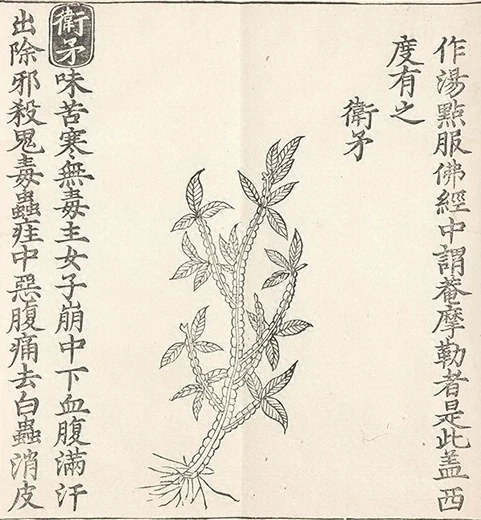 作湯㸃服佛經中謂菴摩勒者是此盖西
度有之
衛矛
衛矛味苦寒無毒主女子崩中下血腹滿汗
出除邪殺鬼毒蟲疰中惡腹痛去白蟲消皮